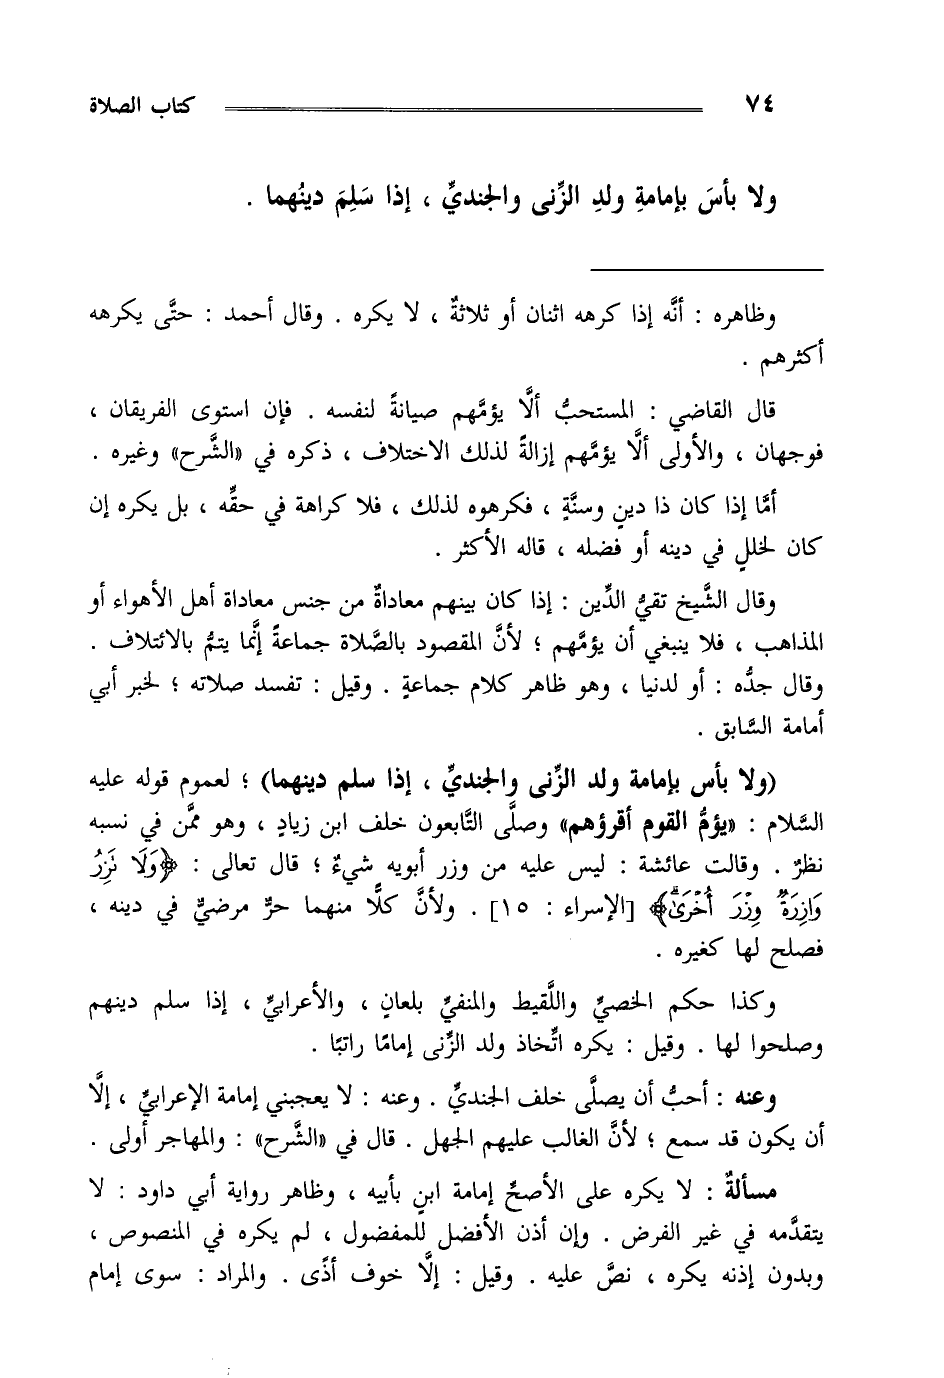 ٧٤ كتاب الصلاة
ولا بأسَ بإمامةِ ولدِ الزِّنى والجنديِّ ، إذا سَلِمَ دينُهما .
وظاهره : أنَّه إذا كرهه اثنان أو ثلاثةٌ ، لا يكره . وقال أحمد : حتَّى يكرهه
أكثرهم .
قال القاضي : المستحبُّ ألَّا يؤمَّهم صيانةً لنفسه . فإن استوى الفريقان ،
فوجهان ، والأولى ألَّا يؤمَّهم إزالةً لذلك الاختلاف ، ذكره في «الشَّرح» وغيره .
أمَّا إذا كان ذا دينٍ وسنَّةٍ ، فكرهوه لذلك ، فلا كراهة في حقِّه ، بل يكره إن
كان لخللٍ في دينه أو فضله ، قاله الأكثر .
وقال الشَّيخ تقيُّ الدِّين : إذا كان بينهم معاداةٌ من جنس معاداة أهل الأهواء أو
المذاهب ، فلا ينبغي أن يؤمَّهم ؛ لأنَّ المقصود بالصَّلاة جماعةً إنَّما يتمُّ بالائتلاف .
وقال جدُّه : أو لدنيا ، وهو ظاهر كلام جماعةٍ . وقيل : تفسد صلاته ؛ لخبر أبي
أمامة السَّابق .
(ولا بأس بإمامة ولد الزِّنى والجنديِّ ، إذا سلم دينهما) ؛ لعموم قوله عليه
السَّلام : «يؤمُّ القوم أقرؤهم» وصلَّى التَّابعون خلف ابن زيادٍ ، وهو ممَّن في نسبه
نظرٌ . وقالت عائشة : ليس عليه من وزر أبويه شيءٌ ؛ قال تعالى : ﴿وَلَا نَزِرُ
وَازِرَةٌ وِزْرَ أُخْرَىٰ﴾ [الإسراء : ١٥] . ولأنَّ كلًّا منهما حرٌّ مرضيٌّ في دينه ،
فصلح لها كغيره .
وكذا حكم الخصيِّ واللَّقيط والمنفيِّ بلعانٍ ، والأعرابيِّ ، إذا سلم دينهم
وصلحوا لها . وقيل : يكره اتِّخاذ ولد الزِّنى إمامًا راتبًا .
وعنه : أحبُّ أن يصلَّى خلف الجنديِّ . وعنه : لا يعجبني إمامة الإعرابيِّ ، إلَّا
أن يكون قد سمع ؛ لأنَّ الغالب عليهم الجهل . قال في «الشَّرح» : والمهاجر أولى .
مسألةٌ : لا يكره على الأصحِّ إمامة ابنٍ بأبيه ، وظاهر رواية أبي داود : لا
يتقدَّمه في غير الفرض . وإن أذن الأفضل للمفضول ، لم يكره في المنصوص ،
وبدون إذنه يكره ، نصَّ عليه . وقيل : إلَّا خوف أذًى . والمراد : سوى إمام